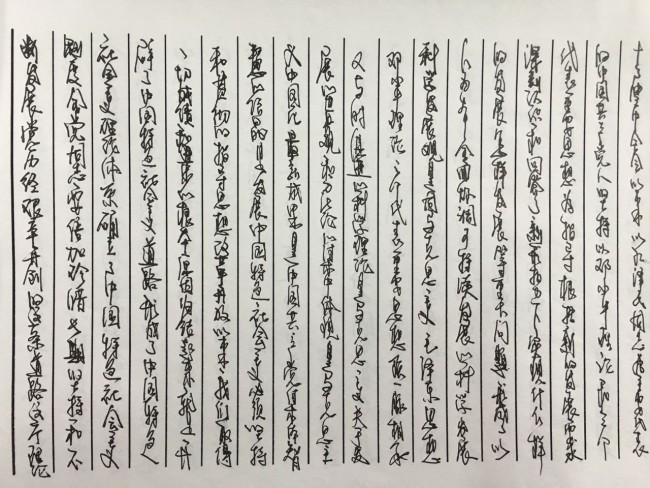 以来以胡锦涛同志为主要代表
的中国共产党人坚持以邓小平理论和三个
代表重要思想为指导根据新的发展要求
深刻认识和回答了新形势下实现什么样
的发展怎样发展等重大问题形成了以
人为本全面协调可持续发展的科学发展
科学发展观是同马克思主义毛泽东思想
邓小平理论三个代表重要思想既一脉相承
又与时俱进的科学理论是马克思主义关于发
展的世界观和方法论的集中体现是马克思主
义中国化最新成果是中国共产党集体智
慧的结晶是发展中国特色社会主义必须坚持
和贯彻的指导思想改革开放以来我们取得
一切成绩和进步的根本原因归结起来就是开
辟了中国特色社会主义道路形成了中国特色
社会主义理论体系确立了中国特色社会主义
制度全党同志要倍加珍惜长期坚持和不
断发展党历经艰辛开创的这条道路这个理论